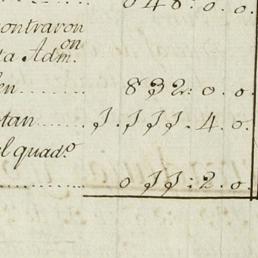 048: 0. 0.
contraron
ta Adm.on
en ........ 832: 0. 0.
tan ........ 1.111. 4. 0.
el quad.o
........ 0 11: 2. 0.